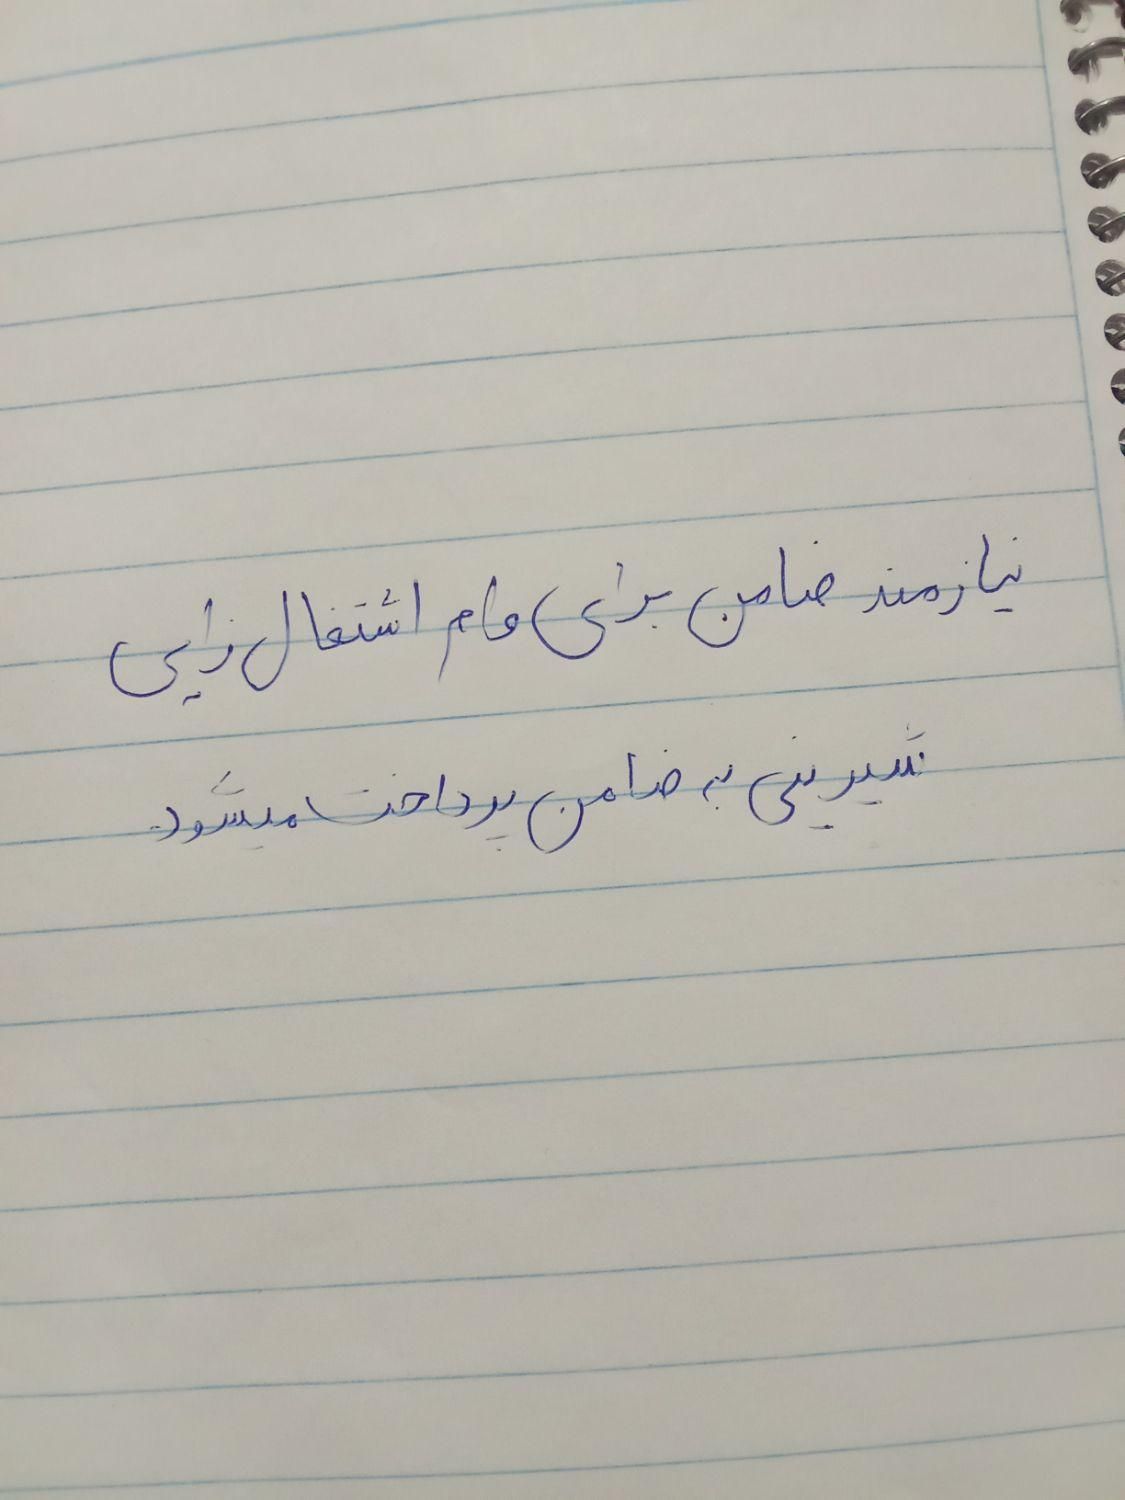 نیازمند ضامن برای وام اشتغال زایی
شیرینی به ضامن پرداخت میشود.